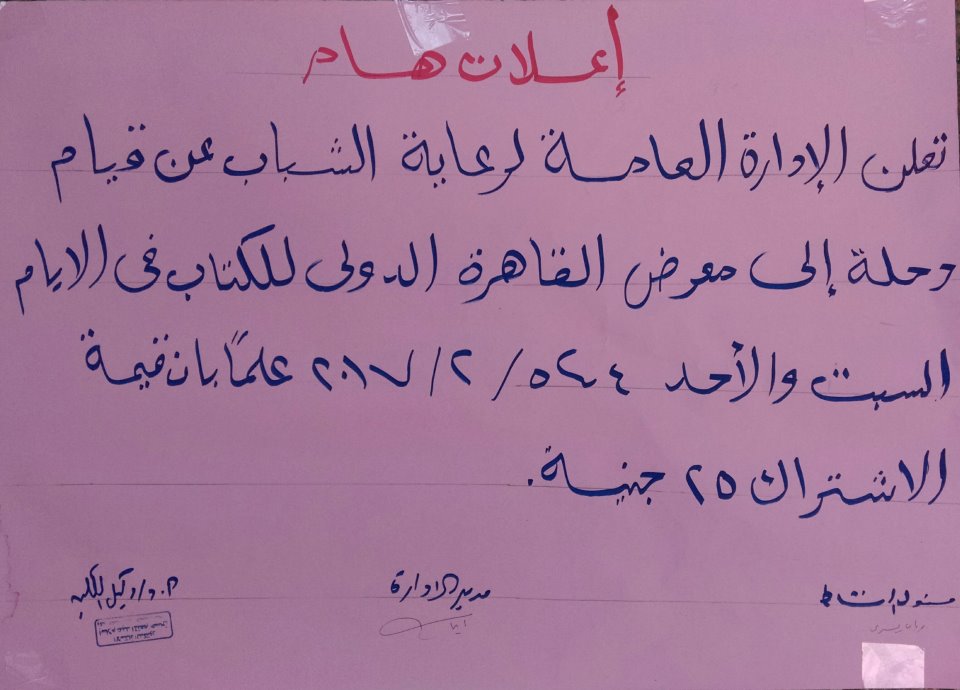 إعلان هام
تعلن الإدارة العامة لرعاية الشباب عن قيام
رحلة إلى معرض القاهرة الدولى للكتاب فى الايام
السبت والأحد ٤، ٥ / ٢ / ٢٠١٧ علمًا بان قيمة
الاشتراك ٢٥ جنية.
مسئول النشاط
مدير الادارة
أ.د/ وكيل الكلية
الأستاذ الدكتور